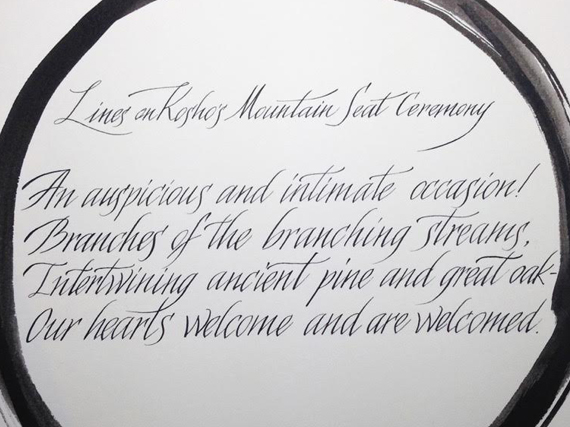 Lines on Kosho's Mountain Seat Ceremony
An auspicious and intimate occasion!
Branches of the branching streams,
Intertwining ancient pine and great oak-
Our hearts welcome and are welcomed.